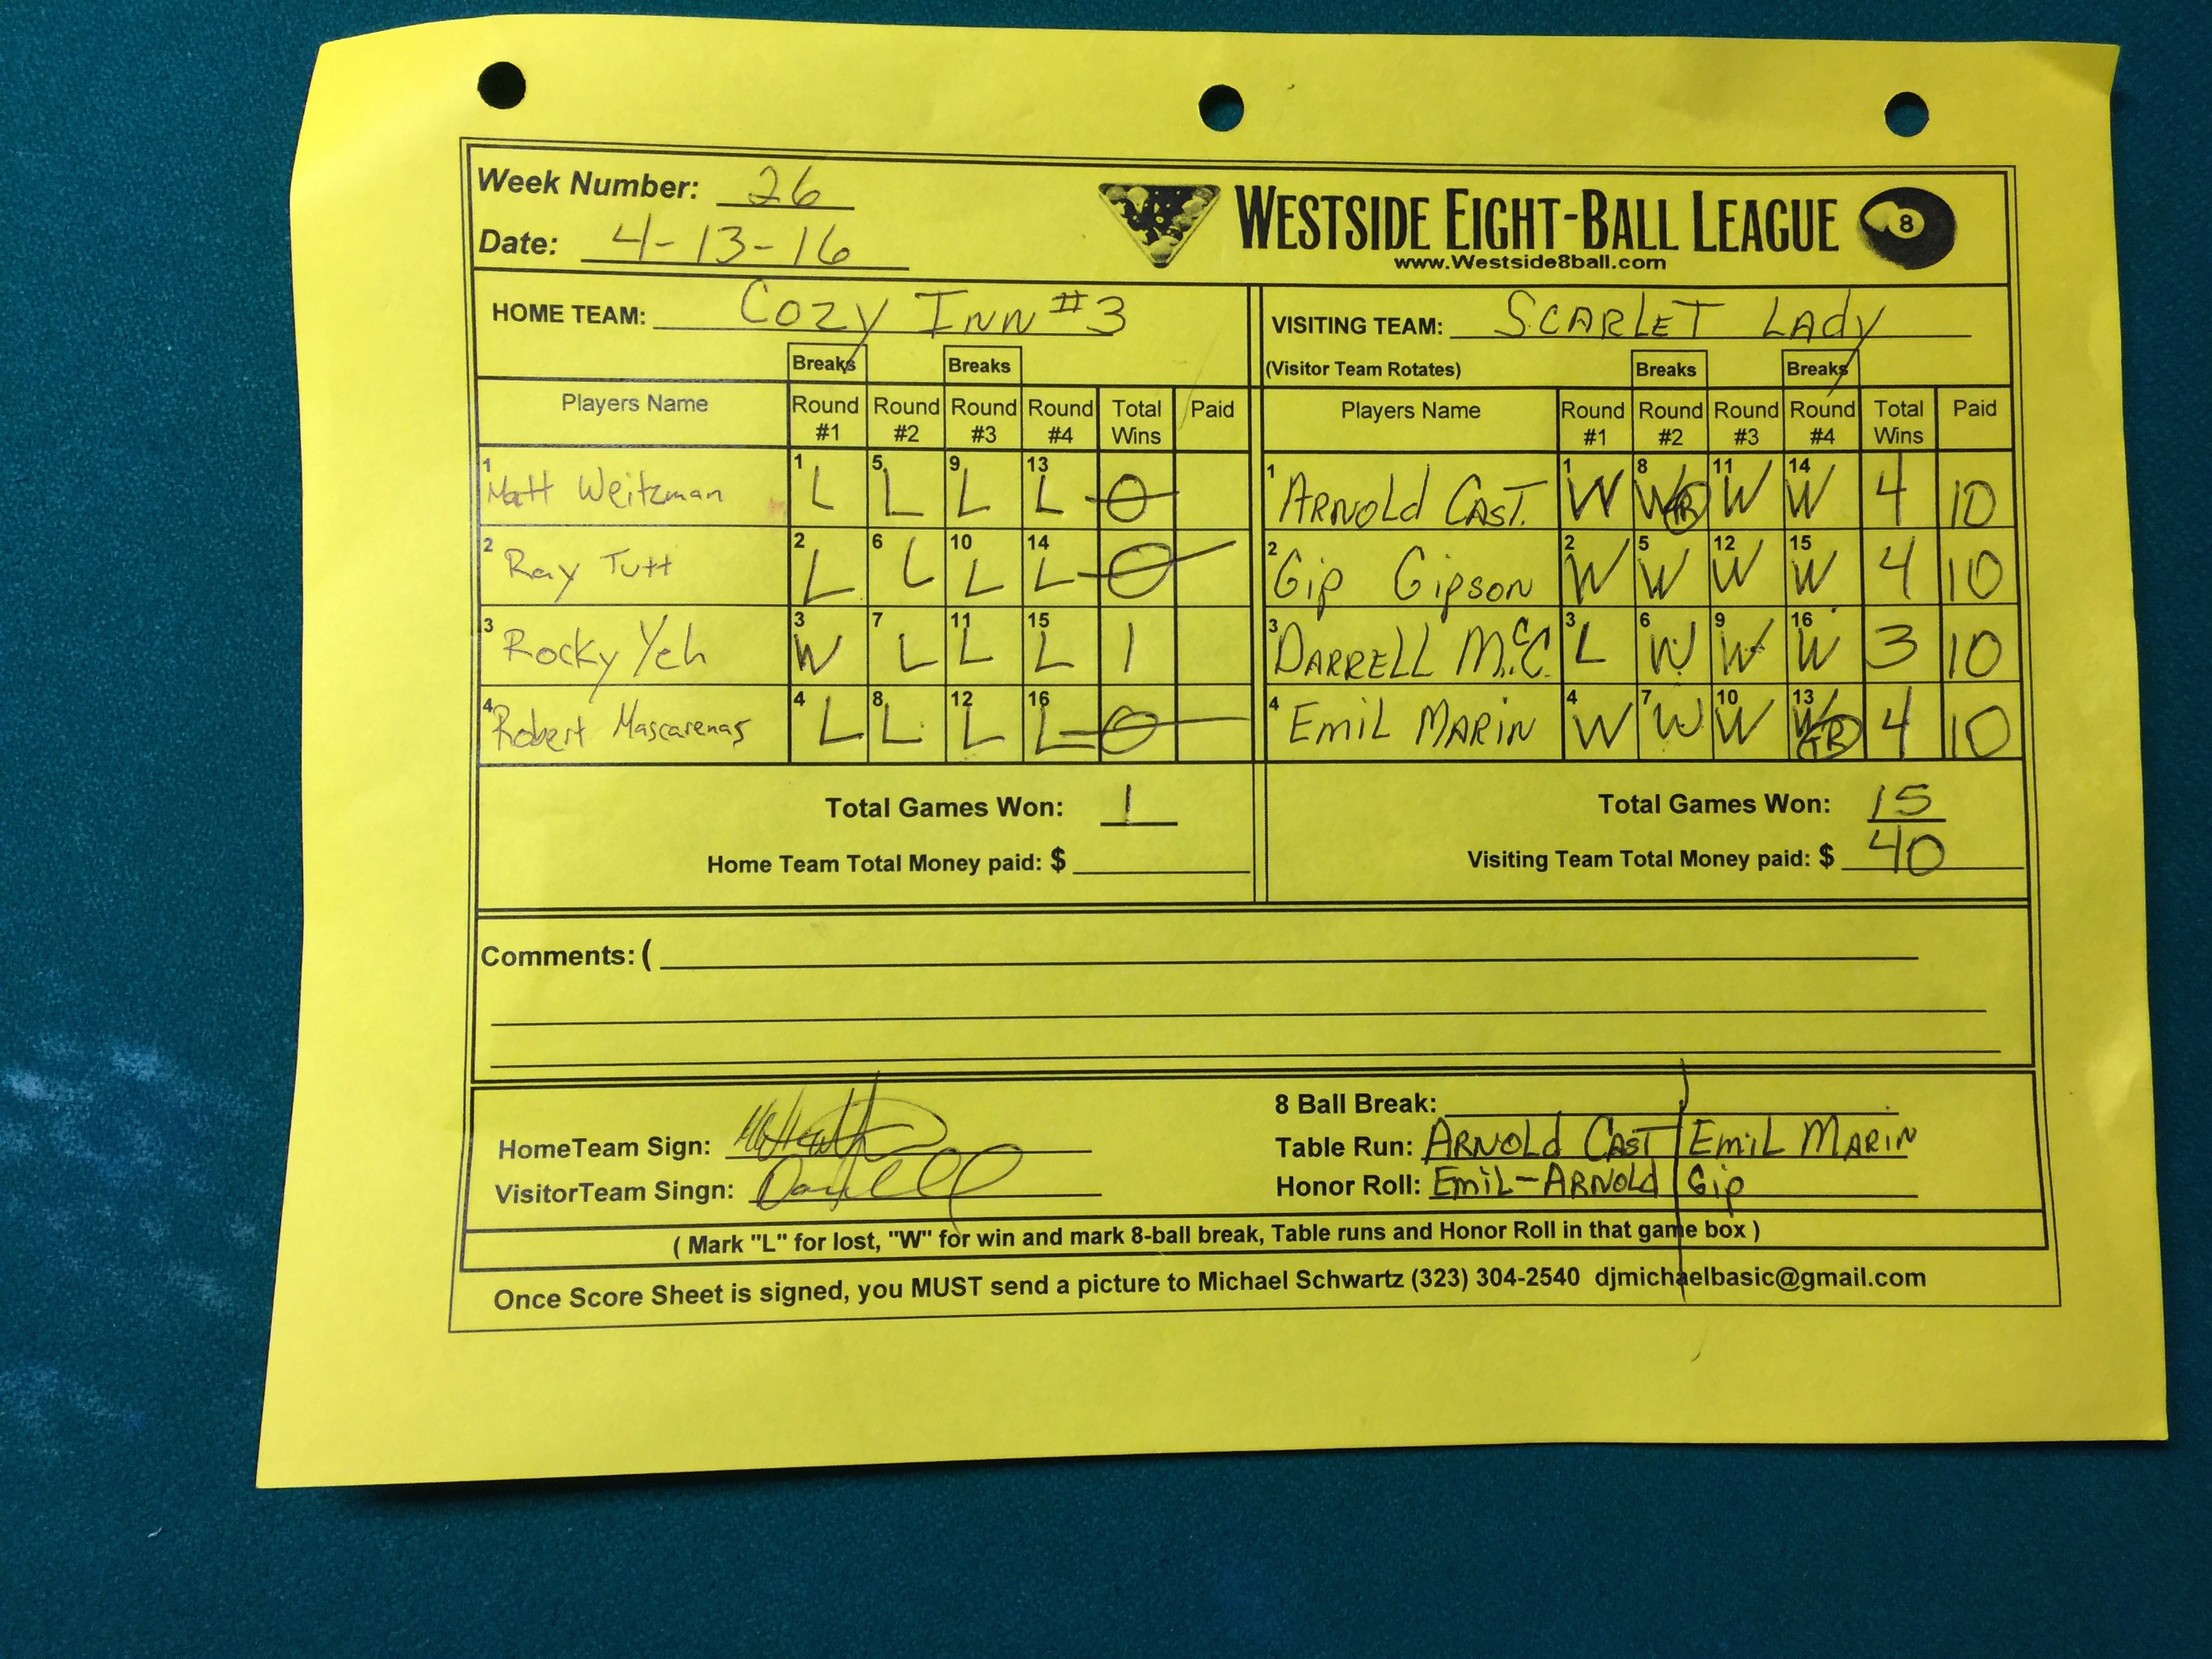 Week Number: 26
Date: 4-13-16
WESTSIDE EIGHT-BALL LEAGUE 8
www.Westside8ball.com
HOME TEAM: Cozy Inn #3 VISITING TEAM: SCARLET LAdy
Breaks Breaks (Visitor Team Rotates) Breaks Breaks
Players Name Round #1 Round #2 Round #3 Round #4 Total Wins Paid Players Name Round #1 Round #2 Round #3 Round #4 Total Wins Paid
1 Matt Weitzman 1 L 5 L 9 L 13 L 0 1 ARNOLd CAST. 1 W 8 W TR 11 W 14 W 4 10
2 Ray Tutt 2 L 6 L 10 L 14 L 0 2 Gip Gipson 2 W 5 W 12 W 15 W 4 10
3 Rocky Yeh 3 W 7 L 11 L 15 L 1 3 DARRELL McC. 3 L 6 W 9 W 16 W 3 10
4 Robert Mascarenas 4 L 8 L 12 L 16 L 0 4 EmiL MARIN 4 W 7 W 10 W 13 W TR 4 10
Total Games Won: 1 Total Games Won: 15
Home Team Total Money paid: $ Visiting Team Total Money paid: $ 40
Comments: (
8 Ball Break:
HomeTeam Sign: Table Run: ARNOLd CAST EmiL MARIN
VisitorTeam Singn: Darrell Honor Roll: EmiL-ARNOLd Gip
( Mark "L" for lost, "W" for win and mark 8-ball break, Table runs and Honor Roll in that game box )
Once Score Sheet is signed, you MUST send a picture to Michael Schwartz (323) 304-2540 djmichaelbasic@gmail.com